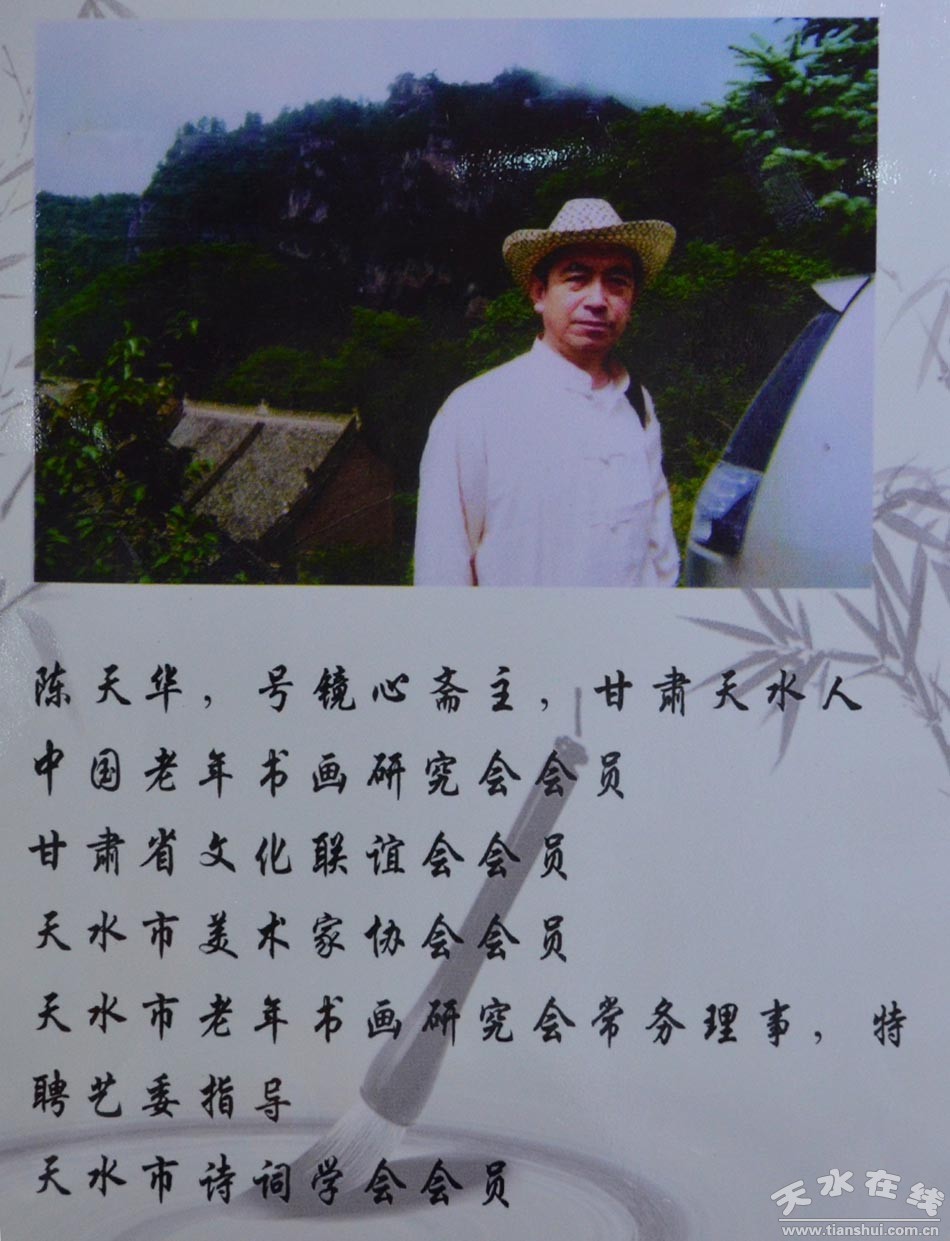 陈天华，号镜心斋主，甘肃天水人
中国老年书画研究会会员
甘肃省文化联谊会会员
天水市美术家协会会员
天水市老年书画研究会常务理事，特
聘艺委指导
天水市诗词学会会员
天水在线
www.tianshui.com.cn